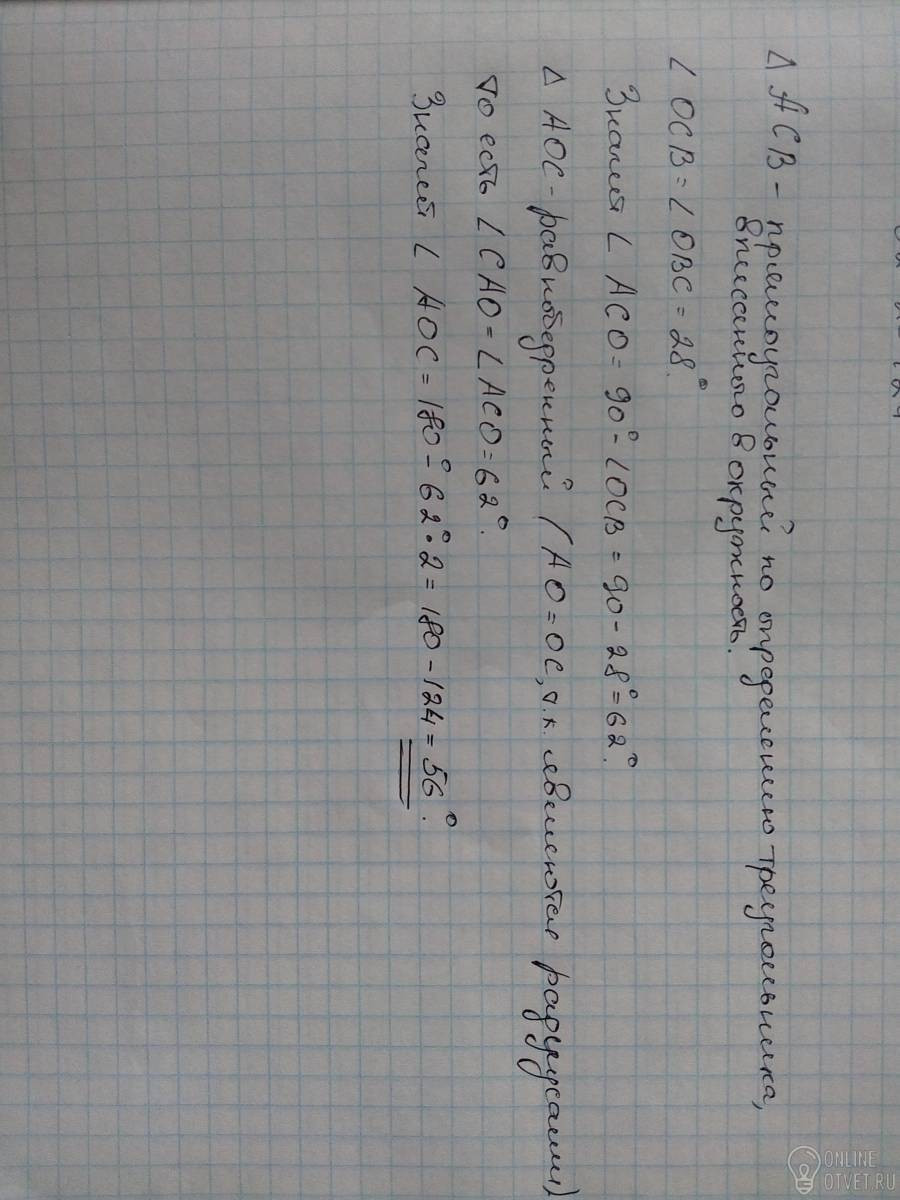 Δ ACB - прямоугольный по определению треугольника,
вписанного в окружность.
∠ OCB = ∠ OBC = 28°.
Значит ∠ ACO = 90° - ∠OCB = 90 - 28° = 62°.
Δ AOC - равнобедренный (AO = OC, т.к. являются радиусами)
то есть ∠ CAO = ∠ ACO = 62°.
Значит ∠ AOC = 180° - 62° · 2 = 180 - 124 = 56°.
ONLINE
OTVET.RU